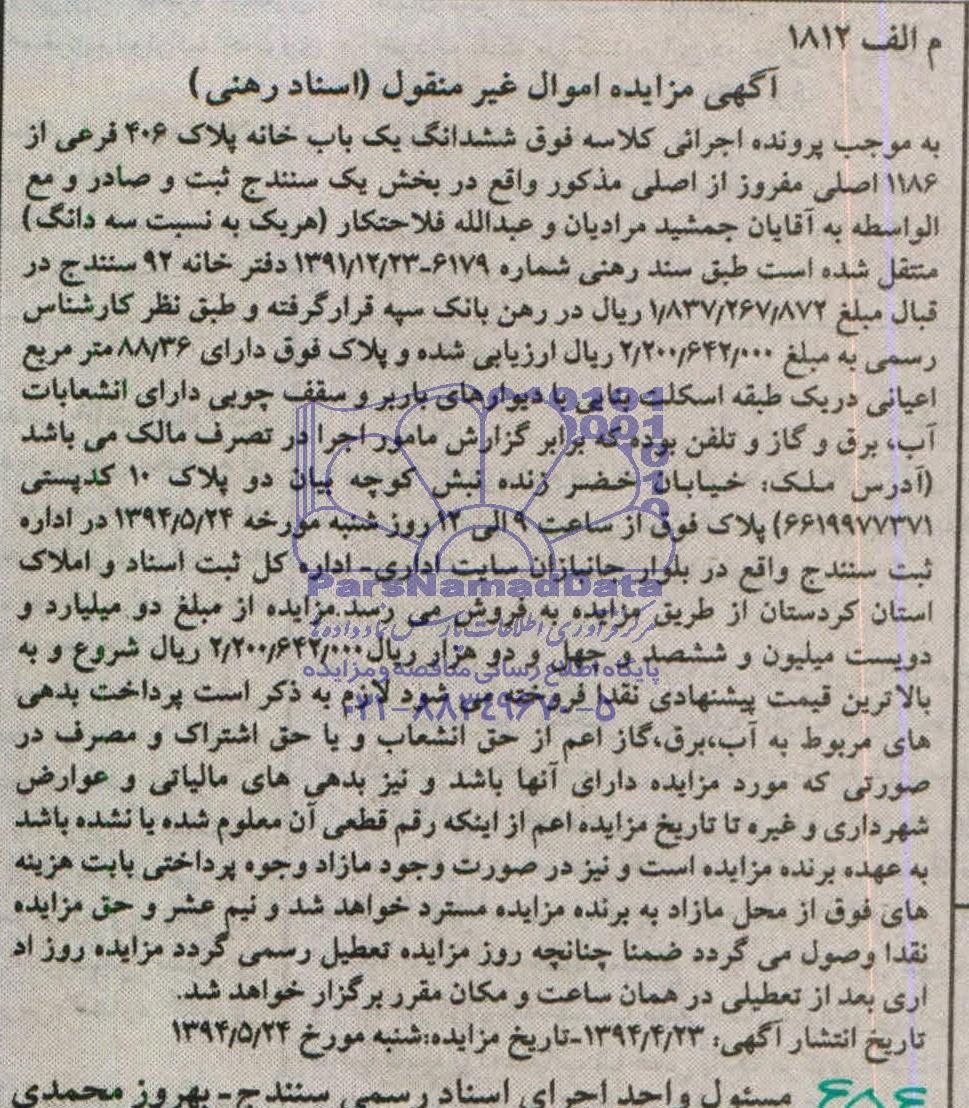 م الف ۱۸۱۲
آگهی مزایده اموال غیر منقول (اسناد رهنی)
به موجب پرونده اجرائی کلاسه فوق ششدانگ یک باب خانه پلاک ۴۰۶ فرعی از
۱۱۸۶ اصلی مفروز از اصلی مذکور واقع در بخش یک سنندج ثبت و صادر و مع
الواسطه به آقایان جمشید مرادیان و عبدالله فلاحتکار (هریک به نسبت سه دانگ)
منتقل شده است طبق سند رهنی شماره ۶۱۷۹-۱۳۹۱/۱۲/۲۳ دفتر خانه ۹۲ سنندج در
قبال مبلغ ۱/۸۳۷/۲۶۷/۸۷۲ ریال در رهن بانک سپه قرارگرفته و طبق نظر کارشناس
رسمی به مبلغ ۲/۲۰۰/۶۴۲/۰۰۰ ریال ارزیابی شده و پلاک فوق دارای ۸۸/۳۶ متر مربع
اعیانی دریک طبقه اسکلت بنایی با دیوارهای باربر و سقف چوبی دارای انشعابات
آب، برق و گاز و تلفن بوده که برابر گزارش مامور اجرا در تصرف مالک می باشد
(آدرس ملک: خیابان خضر زنده نبش کوچه بیان دو پلاک ۱۰ کدپستی
۶۶۱۹۹۷۷۳۷۱) پلاک فوق از ساعت ۹ الی ۱۲ روز شنبه مورخه ۱۳۹۴/۵/۲۴ در اداره
ثبت سنندج واقع در بلوار جانبازان سایت اداری- اداره کل ثبت اسناد و املاک
ParsNamadData
استان کردستان از طریق مزایده به فروش می رسد.مزایده از مبلغ دو میلیارد و
مرکز فرآوری اطلاعات پارس نماد داده ها
دویست میلیون و ششصد و چهل و دو هزار ریال ۲/۲۰۰/۶۴۲/۰۰۰ ریال شروع و به
پایگاه اطلاع رسانی مناقصه و مزایده
بالاترین قیمت پیشنهادی نقدا فروخته می شود لازم به ذکر است پرداخت بدهی
۰۲۱-۸۸۳۴۹۶۷۰-۵
های مربوط به آب،برق،گاز اعم از حق انشعاب و یا حق اشتراک و مصرف در
صورتی که مورد مزایده دارای آنها باشد و نیز بدهی های مالیاتی و عوارض
شهرداری و غیره تا تاریخ مزایده اعم از اینکه رقم قطعی آن معلوم شده یا نشده باشد
به عهده برنده مزایده است و نیز در صورت وجود مازاد وجوه پرداختی بابت هزینه
های فوق از محل مازاد به برنده مزایده مسترد خواهد شد و نیم عشر و حق مزایده
نقدا وصول می گردد ضمنا چنانچه روز مزایده تعطیل رسمی گردد مزایده روز اد
اری بعد از تعطیلی در همان ساعت و مکان مقرر برگزار خواهد شد.
تاریخ انتشار آگهی: ۱۳۹۴/۴/۲۳-تاریخ مزایده:شنبه مورخ ۱۳۹۴/۵/۲۴
۶۸۶ مسئول واحد اجرای اسناد رسمی سنندج- بهروز محمدی